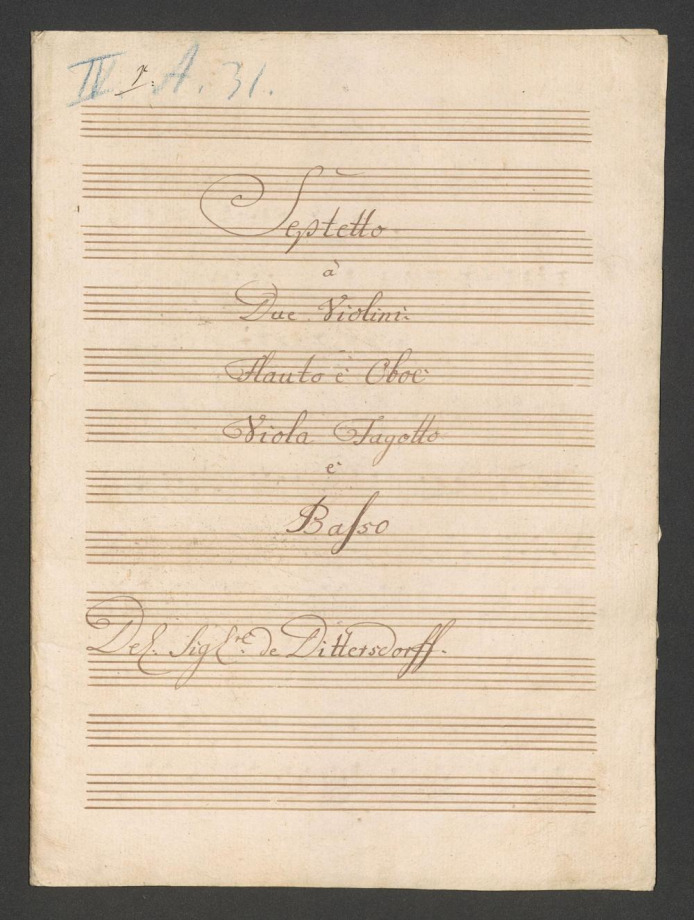 IV A. 31.
Septetto
à
Due Violini.
Flauto è Oboe
Viola Fagotto
è
Basso
Del. Sigre. de Dittersdorff.